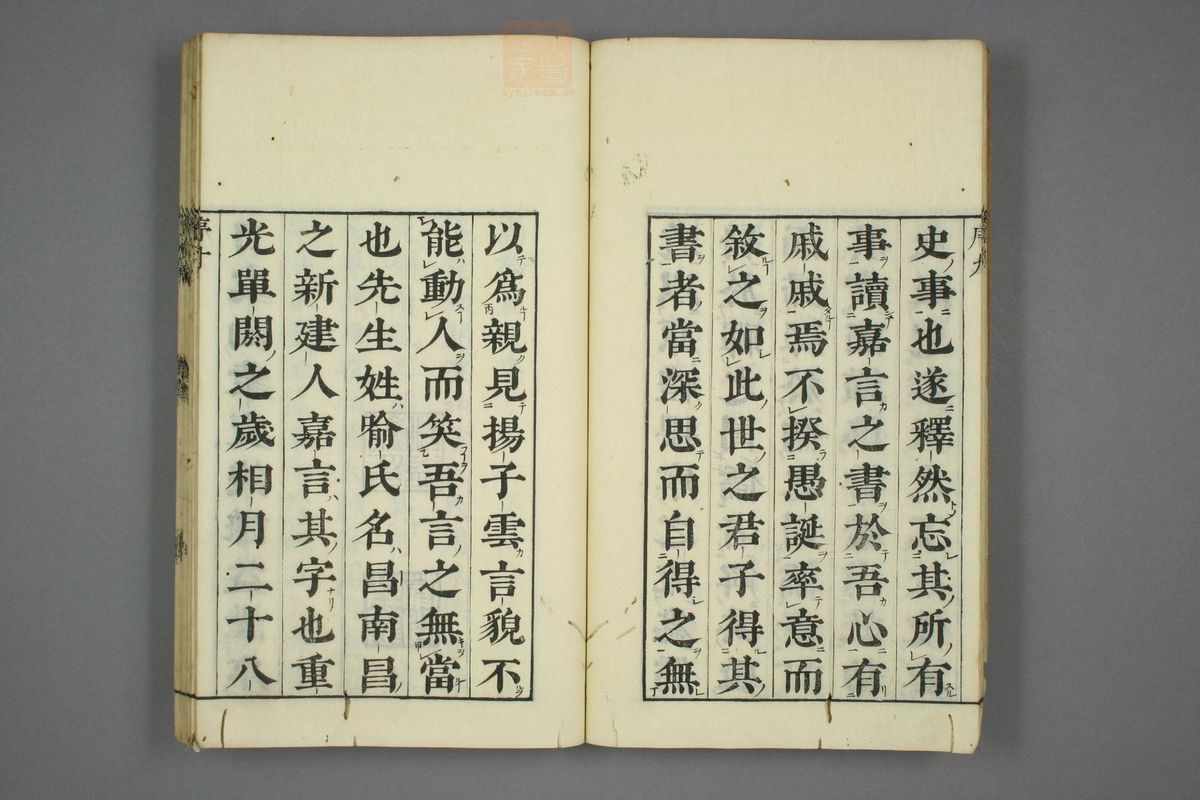 史事也遂釋然忘其所有
事讀嘉言之書於吾心有
戚戚焉不揆愚誕率意而
敘之如此世之君子得其
書者當深思而自得之無
以爲親見揚子雲言貌不
能動人而笑吾言之無當
也先生姓喻氏名昌南昌
之新建人嘉言其字也重
光單閼之歲相月二十八
zysj.com.cn